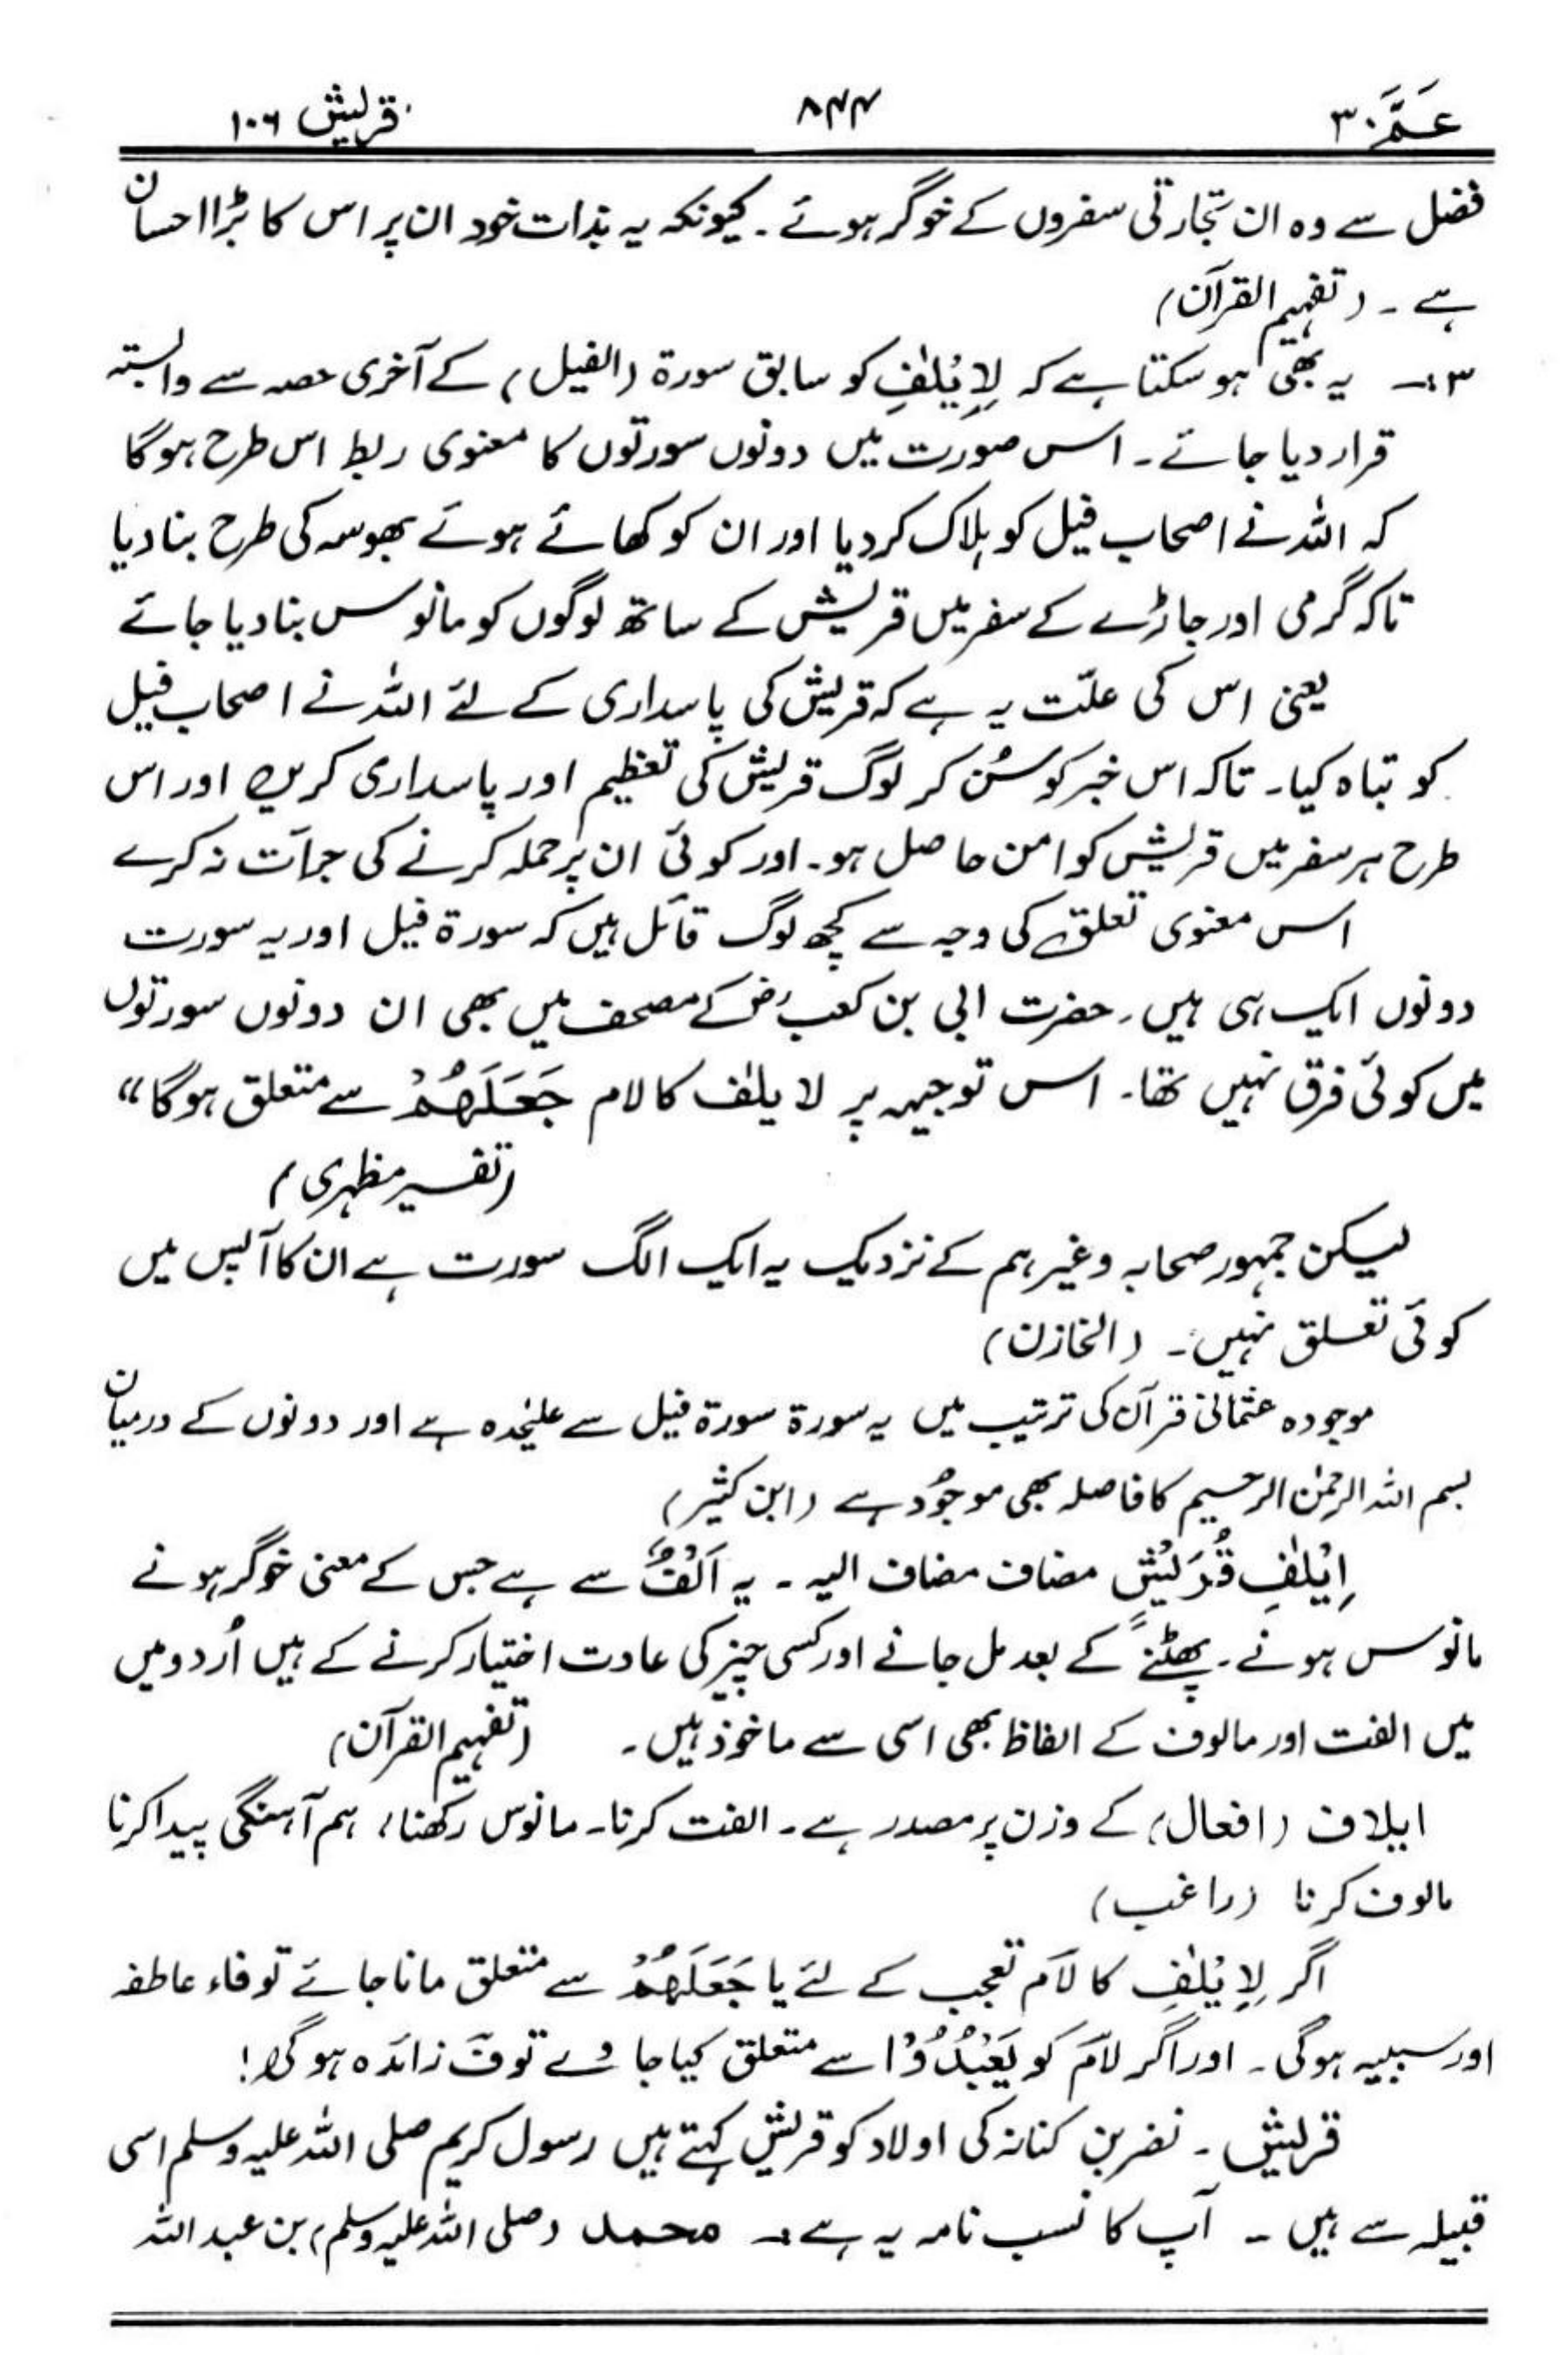 عَمَّ ۳۰ ۸۴۴ قریش ۱۰۶
فضل سے وہ ان تجارتی سفروں کے خوگر ہوئے ۔ کیونکہ یہ بذات خود ان پر اس کا بڑا احسان
ہے ۔ (تفہیم القرآن)
۳ :۔ یہ بھی ہو سکتا ہے کہ لِاِیْلٰفِ کو سابق سورۃ (الفیل) کے آخری حصہ سے وابستہ
قرار دیا جائے ۔ اس صورت میں دونوں سورتوں کا معنوی ربط اس طرح ہوگا
کہ اللہ نے اصحاب فیل کو ہلاک کر دیا اور ان کو کھائے ہوئے بھوسہ کی طرح بنا دیا
تاکہ گرمی اور جاڑے کے سفر میں قریش کے ساتھ لوگوں کو مانوس بنا دیا جائے
یعنی اس کی علّت یہ ہے کہ قریش کی پاسداری کے لئے اللہ نے اصحاب فیل
کو تباہ کیا۔ تاکہ اس خبر کو سُن کر لوگ قریش کی تعظیم اور پاسداری کریں اور اس
طرح ہر سفر میں قریش کو امن حاصل ہو۔ اور کوئی ان پر حملہ کرنے کی جرأت نہ کرے
اس معنوی تعلق کی وجہ سے کچھ لوگ قائل ہیں کہ سورۃ فیل اور یہ سورت
دونوں ایک ہی ہیں ۔ حضرت ابی بن کعب رض کے مصحف میں بھی ان دونوں سورتوں
میں کوئی فرق نہیں تھا۔ اس توجیہہ پر لا یلٰف کا لام جَعَلَهُمْ سے متعلق ہوگا“
(تفسیر مظہری)
لیکن جمہور صحابہ وغیرہم کے نزدیک یہ ایک الگ سورت ہے ان کا آپس میں
کوئی تعلق نہیں۔ (الخازن)
موجودہ عثمانی قرآن کی ترتیب میں یہ سورۃ سورۃ فیل سے علیٰحدہ ہے اور دونوں کے درمیان
بسم اللہ الرحمٰن الرحیم کا فاصلہ بھی موجُود ہے (ابن کثیر)
اِیْلٰفِ قُرَیْشٍ مضاف مضاف الیہ ۔ یہ اَلْفٌ سے ہے جس کے معنی خوگر ہونے
مانوس ہونے ۔ پھٹنے کے بعد مل جانے اور کسی چیز کی عادت اختیار کرنے کے ہیں اُردو میں
میں الفت اور مالوف کے الفاظ بھی اسی سے ماخوذ ہیں ۔ (تفہیم القرآن)
ایلاف (افعال) کے وزن پر مصدر ہے ۔ الفت کرنا۔ مانوس رکھنا، ہم آہنگی پیدا کرنا
مالوف کرنا (راغب)
اگر لِاِیْلٰفِ کا لاَم تعجب کے لئے یا جَعَلَهُمْ سے متعلق مانا جائے تو فاء عاطفہ
اور سببیہ ہوگی ۔ اور اگر لاَم کو یَعْبُدُوْا سے متعلق کیا جاوے تو فَ زائدہ ہوگی!
قریش ۔ نضر بن کنانہ کی اولاد کو قریش کہتے ہیں رسول کریم صلی اللہ علیہ وسلم اسی
قبیلہ سے ہیں ۔ آپ کا نسب نامہ یہ ہے :۔ محمد (صلی اللہ علیہ وسلم) بن عبد اللہ